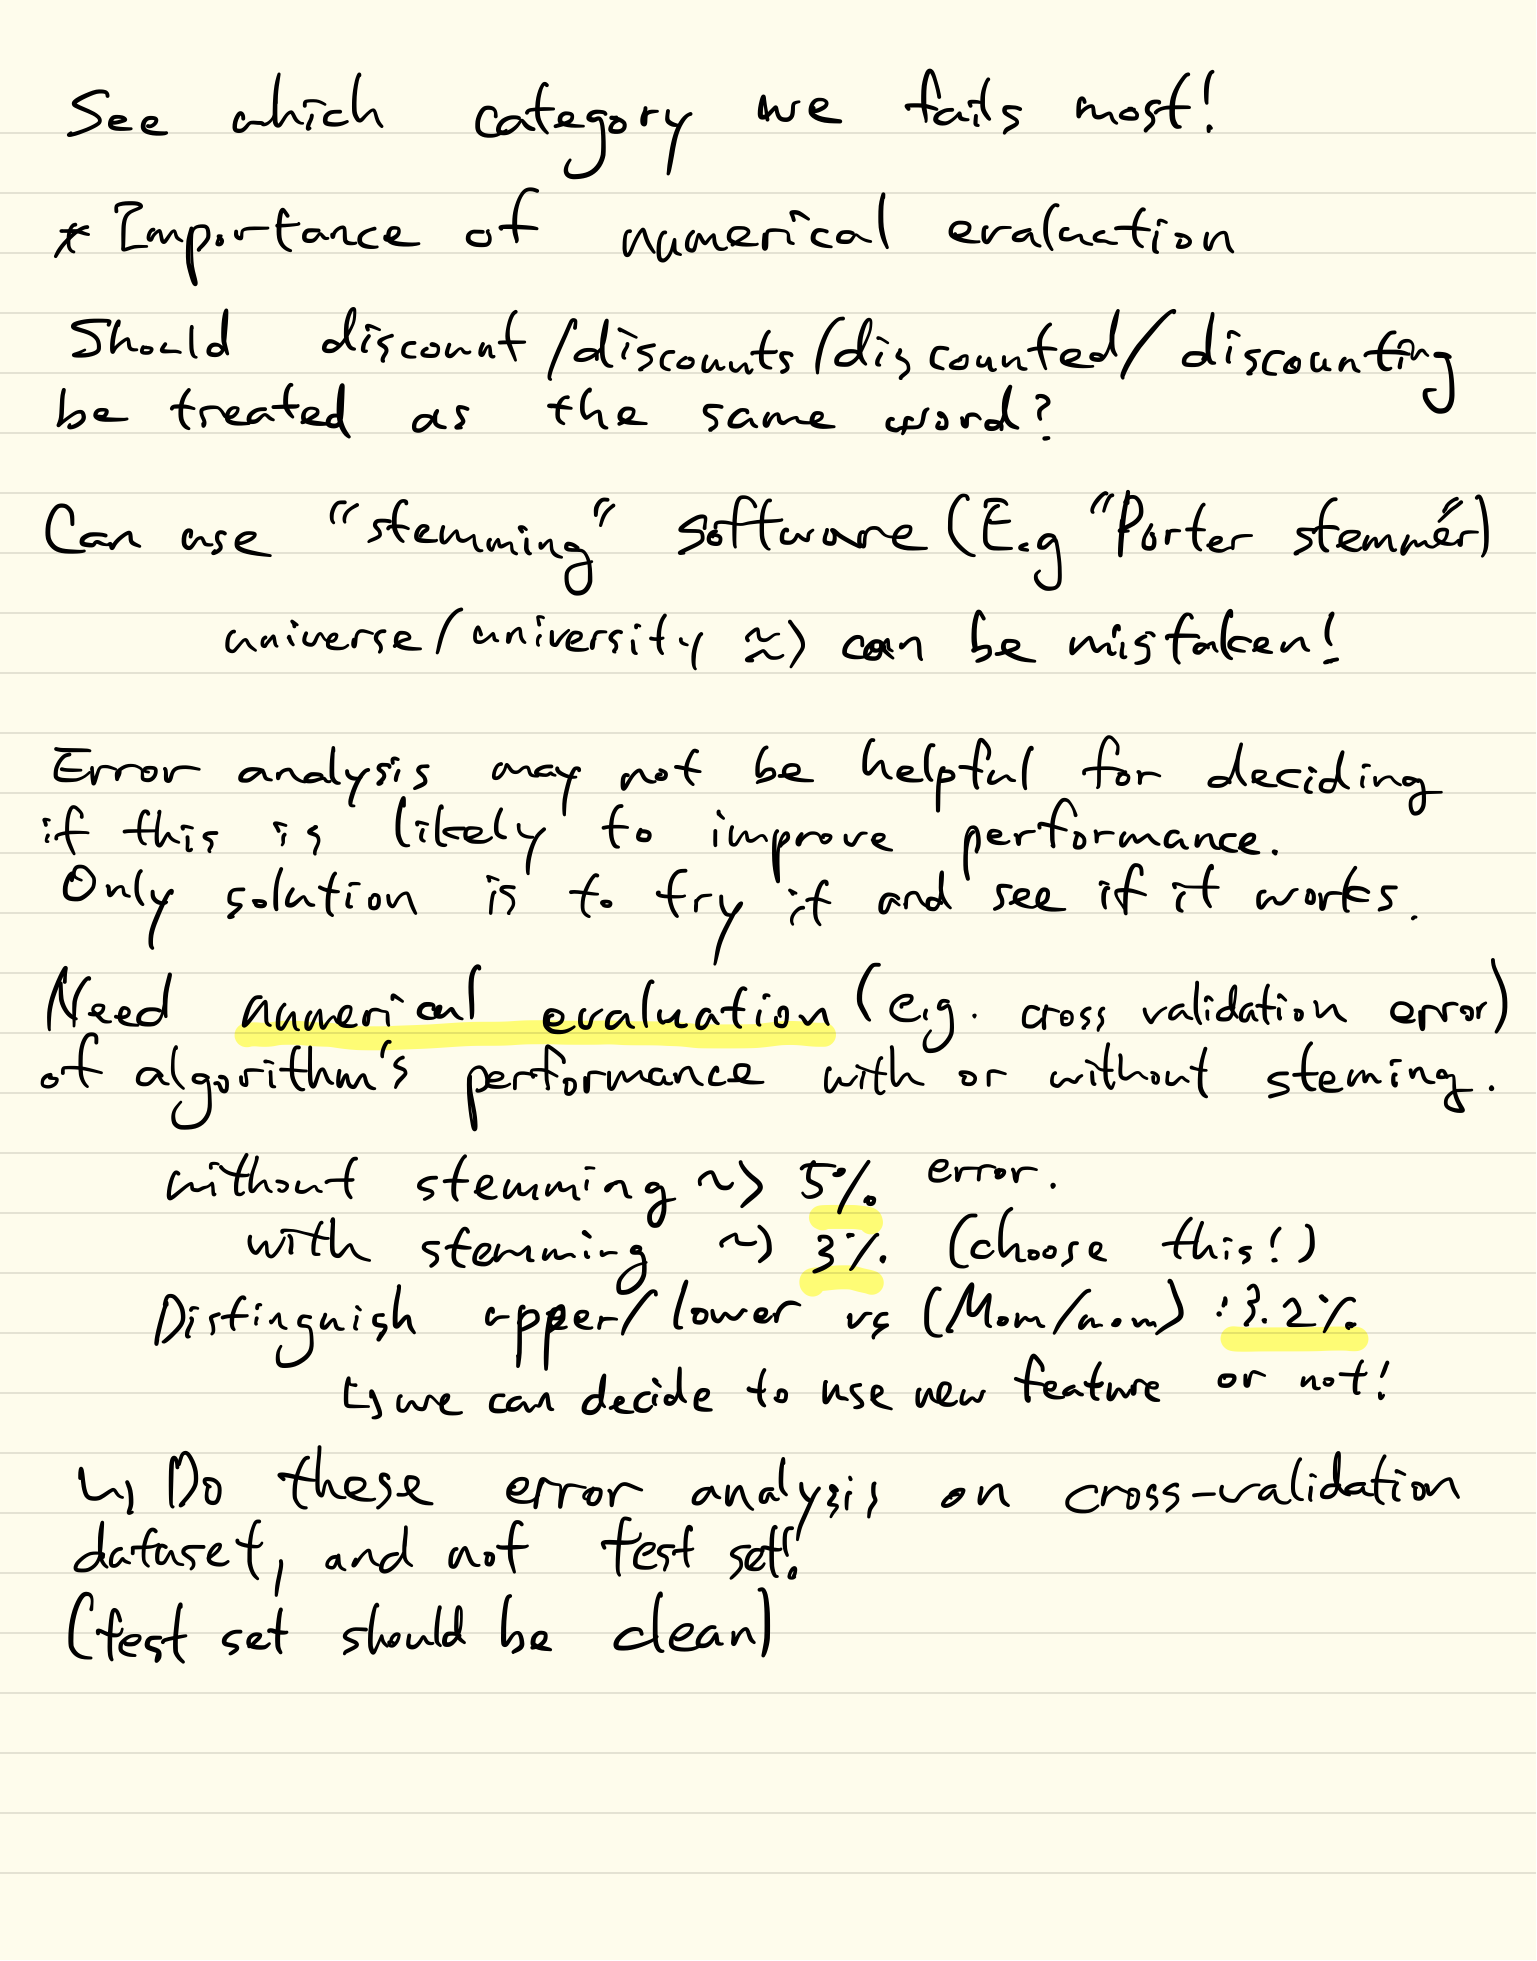 See which category we fails most!
* Importance of numerical evaluation
Should discount/discounts/discounted/discounting
be treated as the same word?
Can use "stemming" software (E.g "Porter stemmer")
universe/university ≈> can be mistaken!
Error analysis may not be helpful for deciding
if this is likely to improve performance.
Only solution is to try it and see if it works.
Need numerical evaluation (e.g. cross validation error)
of algorithm's performance with or without steming.
without stemming ~> 5% error.
with stemming ~> 3% (choose this!)
Distinguish upper/lower vs (Mom/mom) : 3.2%
↳ we can decide to use new feature or not!
↳ Do these error analysis on cross-validation
dataset, and not test set!
(test set should be clean)